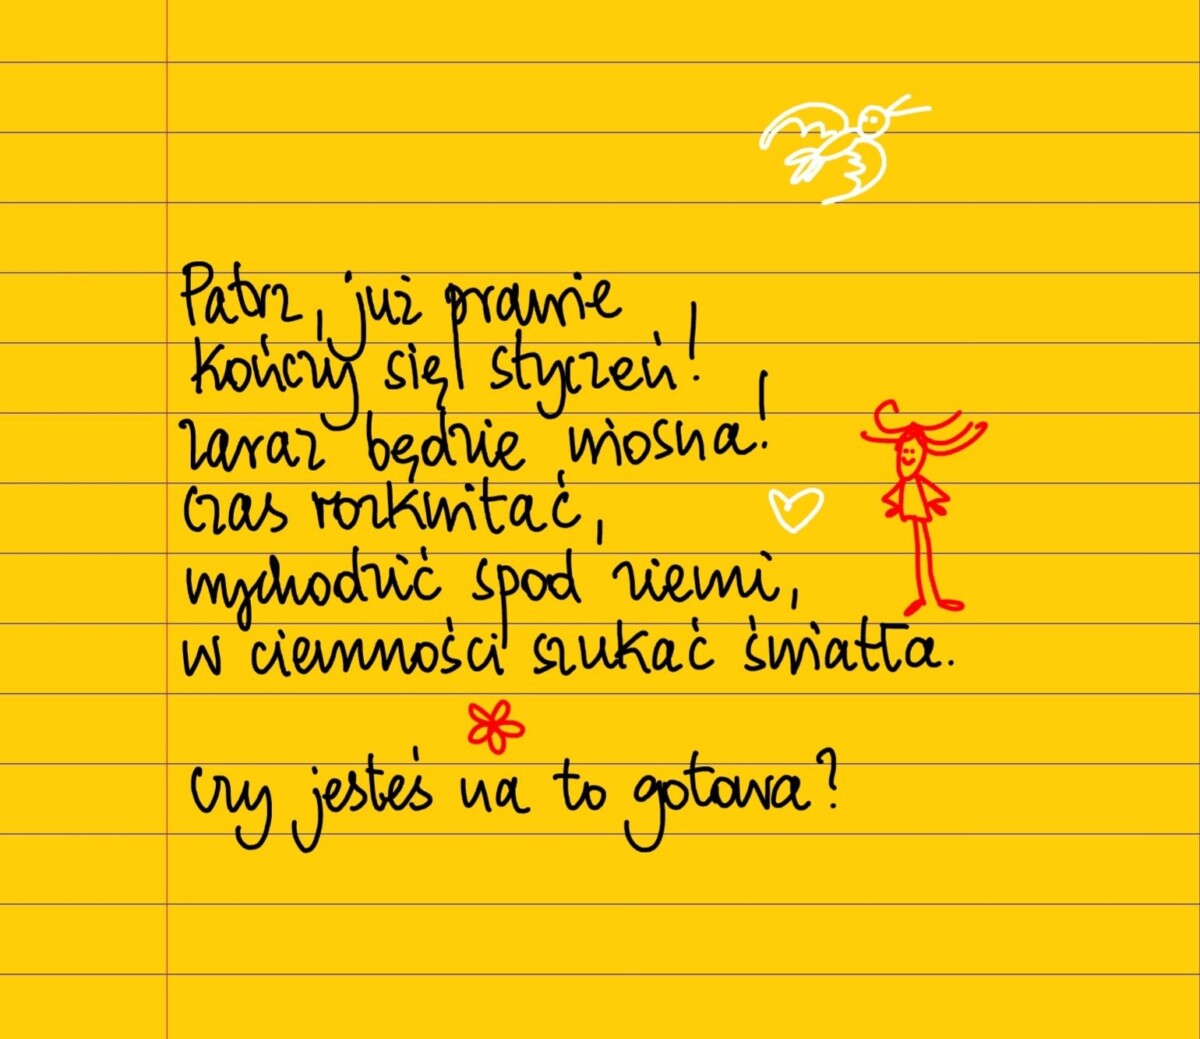 Patrz, już prawie
kończy się styczeń!
zaraz będzie wiosna!
czas rozkwitać,
wychodzić spod ziemi,
w ciemności szukać światła.
czy jesteś na to gotowa?